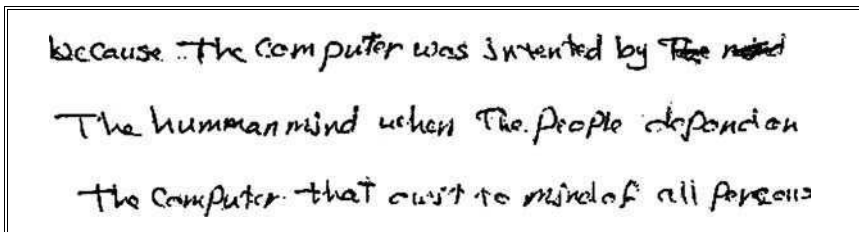 because the computer was intented by The mind
The humman mind when The people depend on
the computer that to mind of all persons